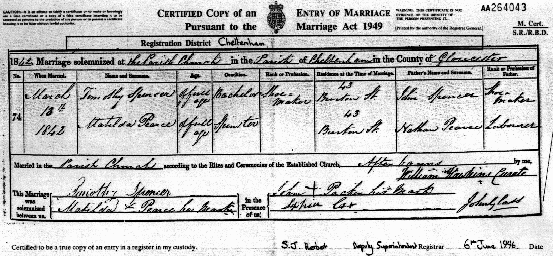 AA264043
CERTIFIED COPY of an ENTRY OF MARRIAGE
Pursuant to the Marriage Act 1949
M. Cert.
S.R./R.B.D.
Registration District Cheltenham
1842 Marriage solemnized at the Parish Church in the Parish of Cheltenham in the County of Gloucester
No. When Married. Name and Surname. Age. Condition. Rank or Profession. Residence at the Time of Marriage. Father's Name and Surname. Rank or Profession of Father.
74
March 13th 1842
Timothy Spencer of full age Bachelor Shoe maker 43 Burton St. John Spencer Shoe maker
Matilda Pearce of full age Spinster 43 Burton St. Nathan Pearce Labourer
Married in the Parish Church according to the Rites and Ceremonies of the Established Church, After banns by me,
William Hawkins Curate
This Marriage was solemnized between us,
Timothy Spencer
Matilda + Pearce her Mark
In the Presence of us,
John + Packer his Mark
Cox
John Glass
Certified to be a true copy of an entry in a register in my custody.
S.J. Deputy Superintendent Registrar 6th June 1996 Date